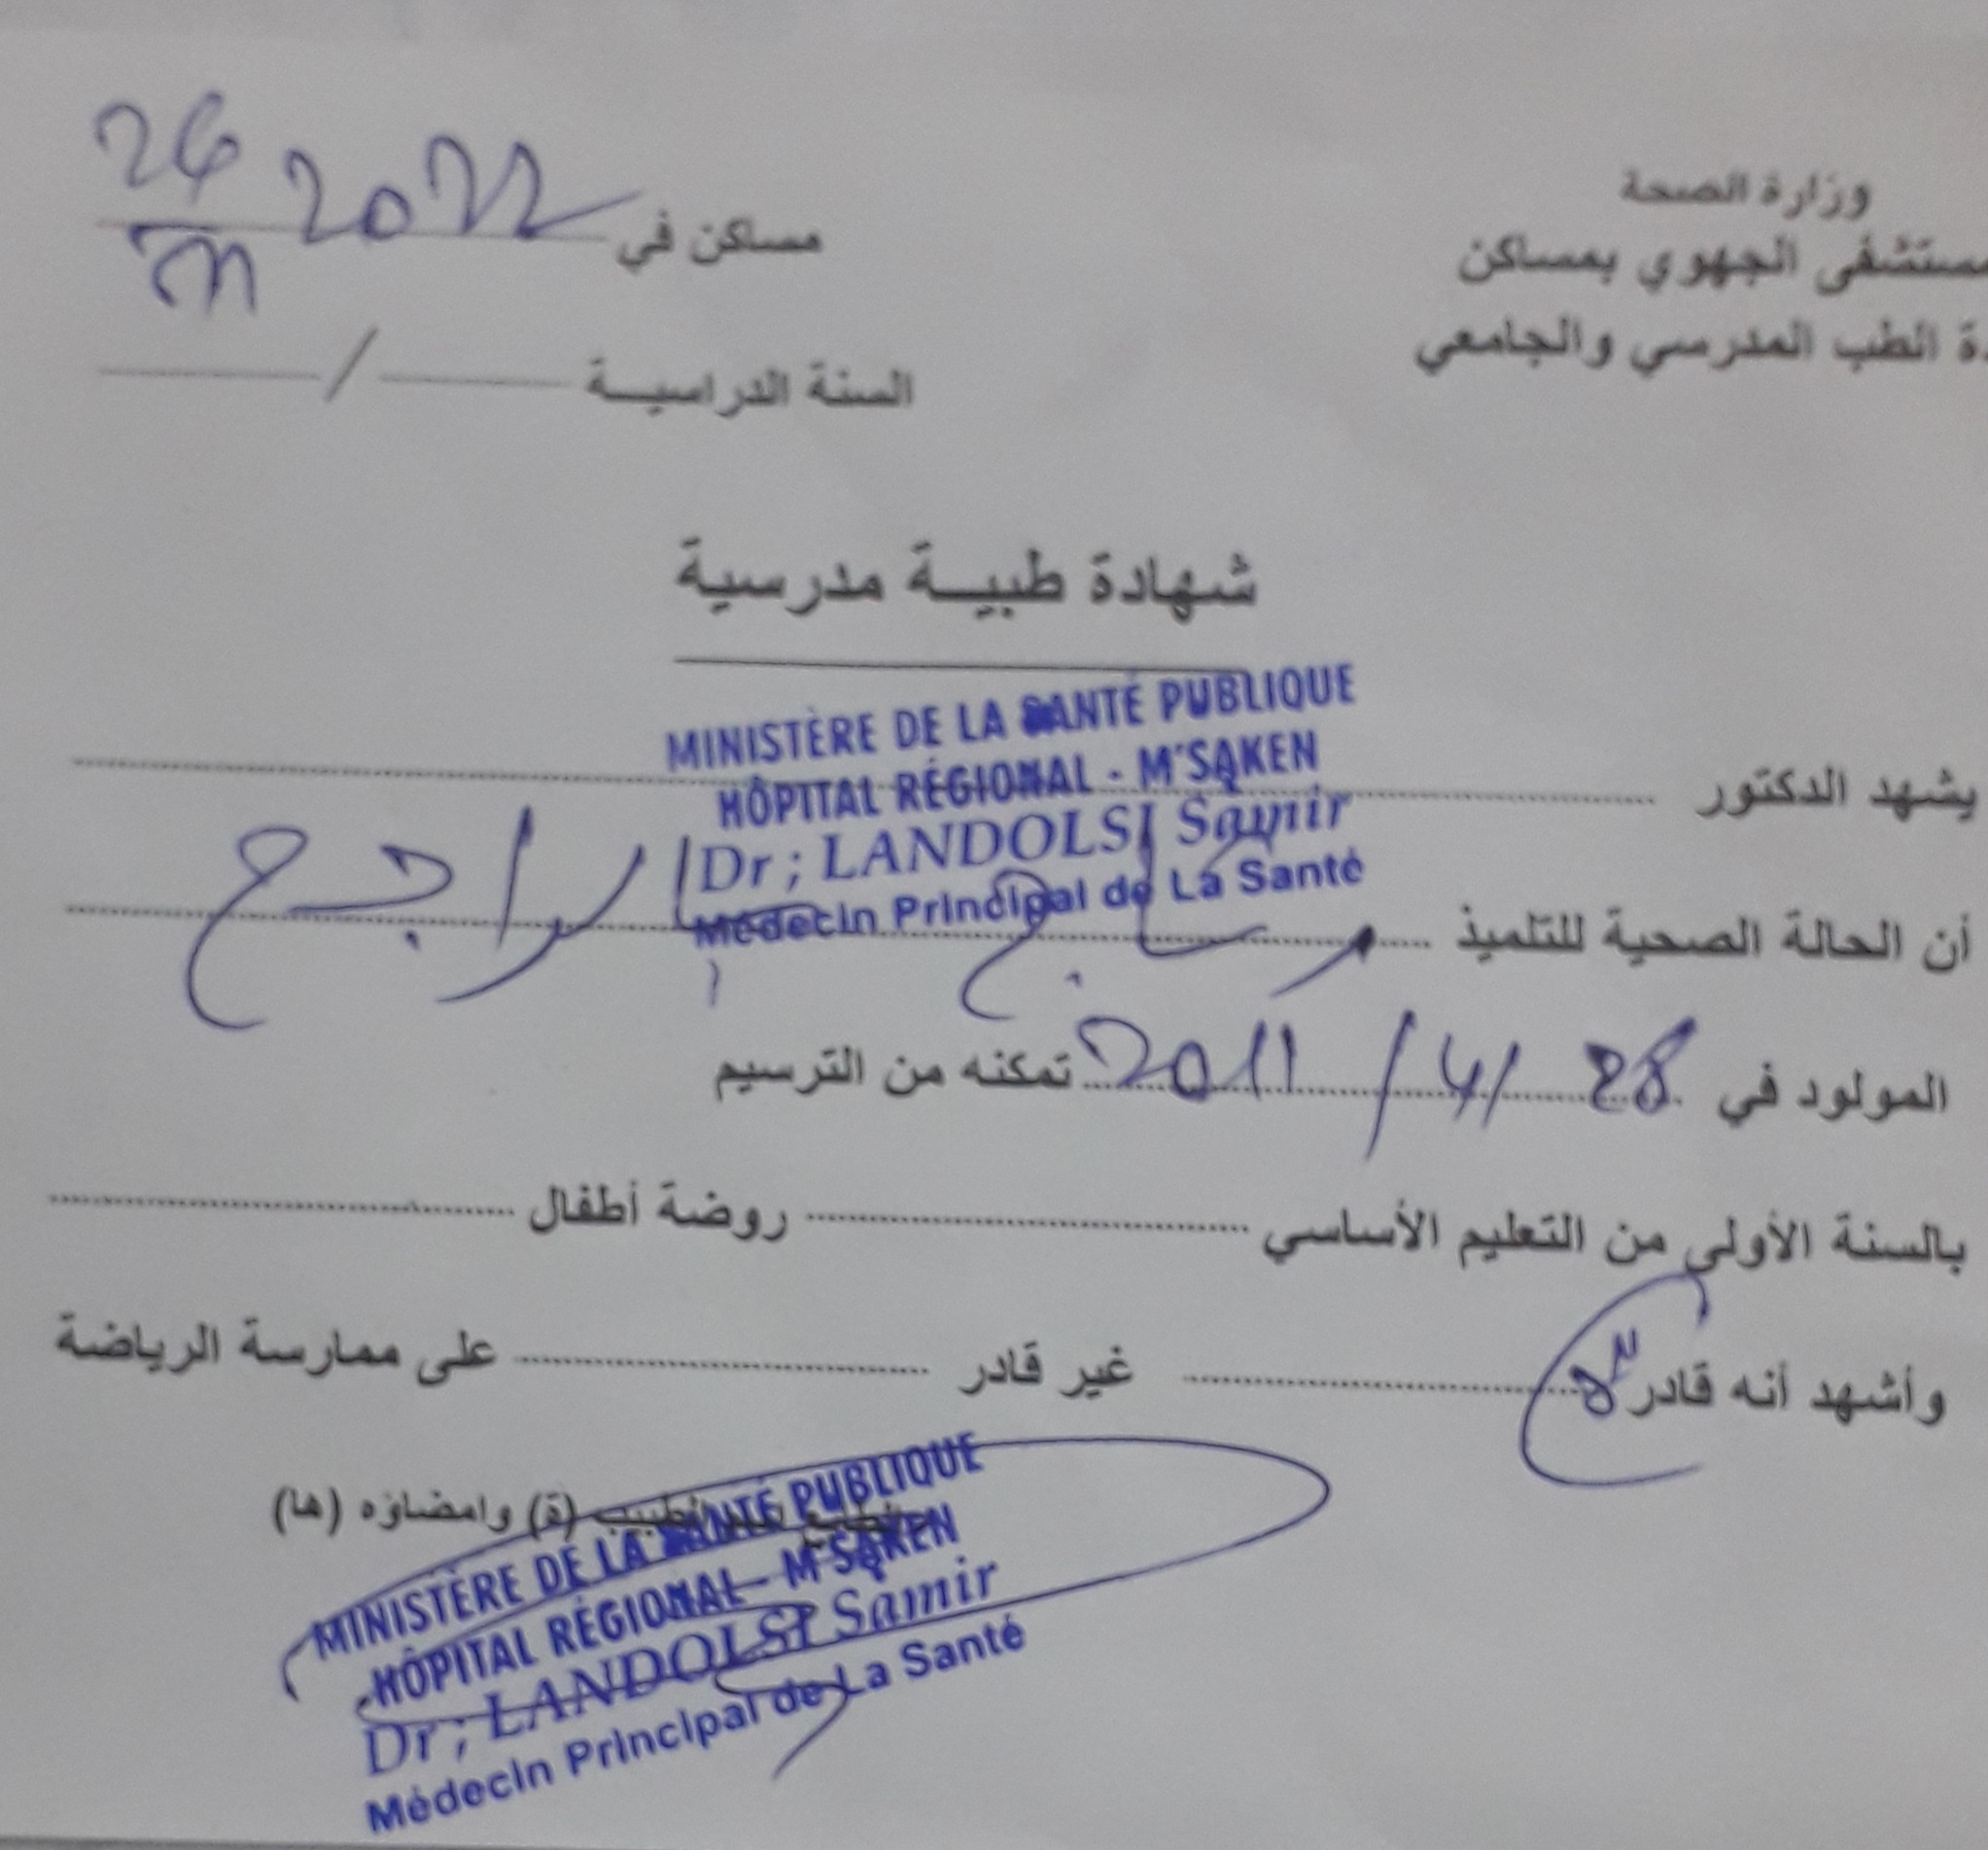 وزارة الصحة
مستشفى الجهوي بمساكن
دة الطب المدرسي والجامعي
مساكن في 2022
السنة الدراسيـــة ــــــ / ــــــ
شهادة طبيـــة مدرسية
MINISTÈRE DE LA SANTÉ PUBLIQUE
HÔPITAL RÉGIONAL - M'SAKEN
Dr ; LANDOLSI Samir
Médecin Principal de La Santé
يشهد الدكتور
أن الحالة الصحية للتلميذ الراجح
المولود في 28 / 4 / 2011 تمكنه من الترسيم
بالسنة الأولى من التعليم الأساسي ........ روضة أطفال ........
وأشهد أنه قادر ........ غير قادر ........ على ممارسة الرياضة
الطبيب (ة) وامضاؤه (ها)
MINISTÈRE DE LA SANTÉ PUBLIQUE
HÔPITAL RÉGIONAL - M'SAKEN
Dr ; LANDOLSI Samir
Médecin Principal de La Santé